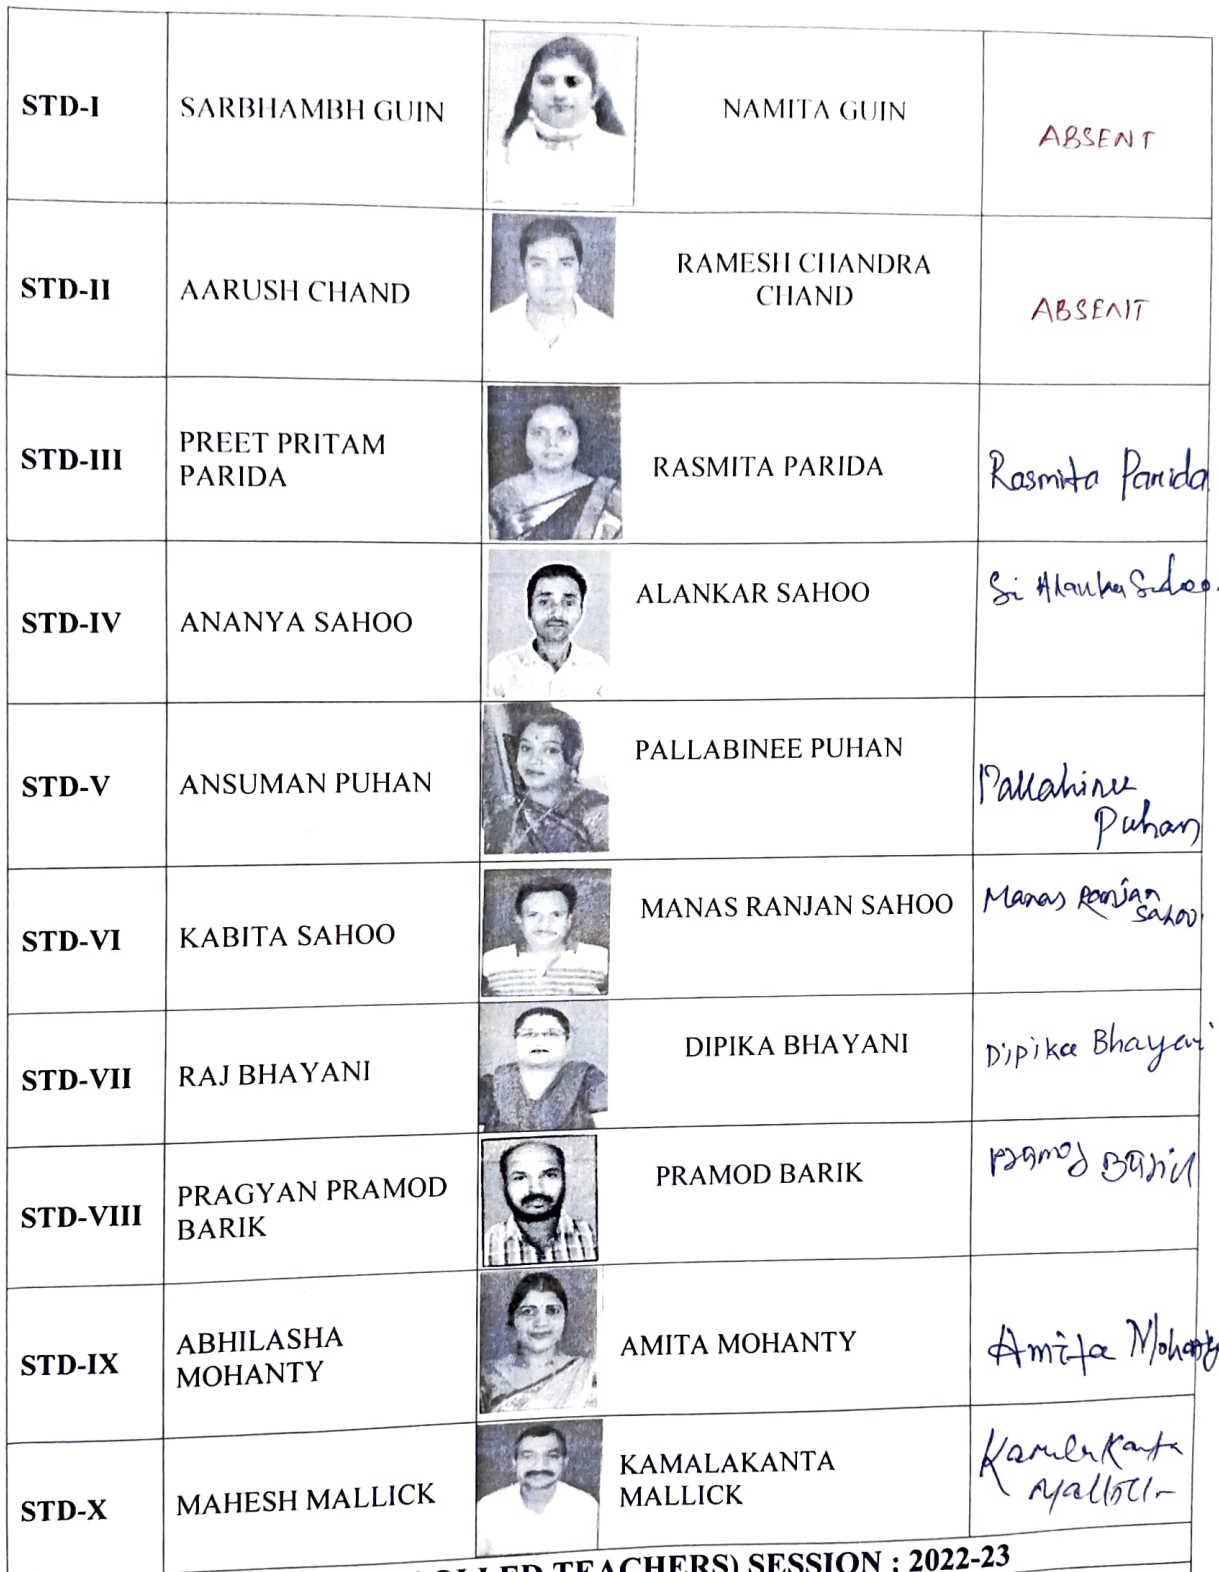 STD-I
SARBHAMBH GUIN
NAMITA GUIN
ABSENT
STD-II
AARUSH CHAND
RAMESH CHANDRA
CHAND
ABSENT
STD-III
PREET PRITAM
PARIDA
RASMITA PARIDA
Rasmita Parida
STD-IV
ANANYA SAHOO
ALANKAR SAHOO
STD-V
ANSUMAN PUHAN
PALLABINEE PUHAN
Pallabinee
Puhan
STD-VI
KABITA SAHOO
MANAS RANJAN SAHOO
Manas Ranjan
Sahoo
STD-VII
RAJ BHAYANI
DIPIKA BHAYANI
Dipika Bhayani
STD-VIII
PRAGYAN PRAMOD
BARIK
PRAMOD BARIK
Pramod Barik
STD-IX
ABHILASHA
MOHANTY
AMITA MOHANTY
Amita Mohanty
STD-X
MAHESH MALLICK
KAMALAKANTA
MALLICK
TEACHERS) SESSION : 2022-23